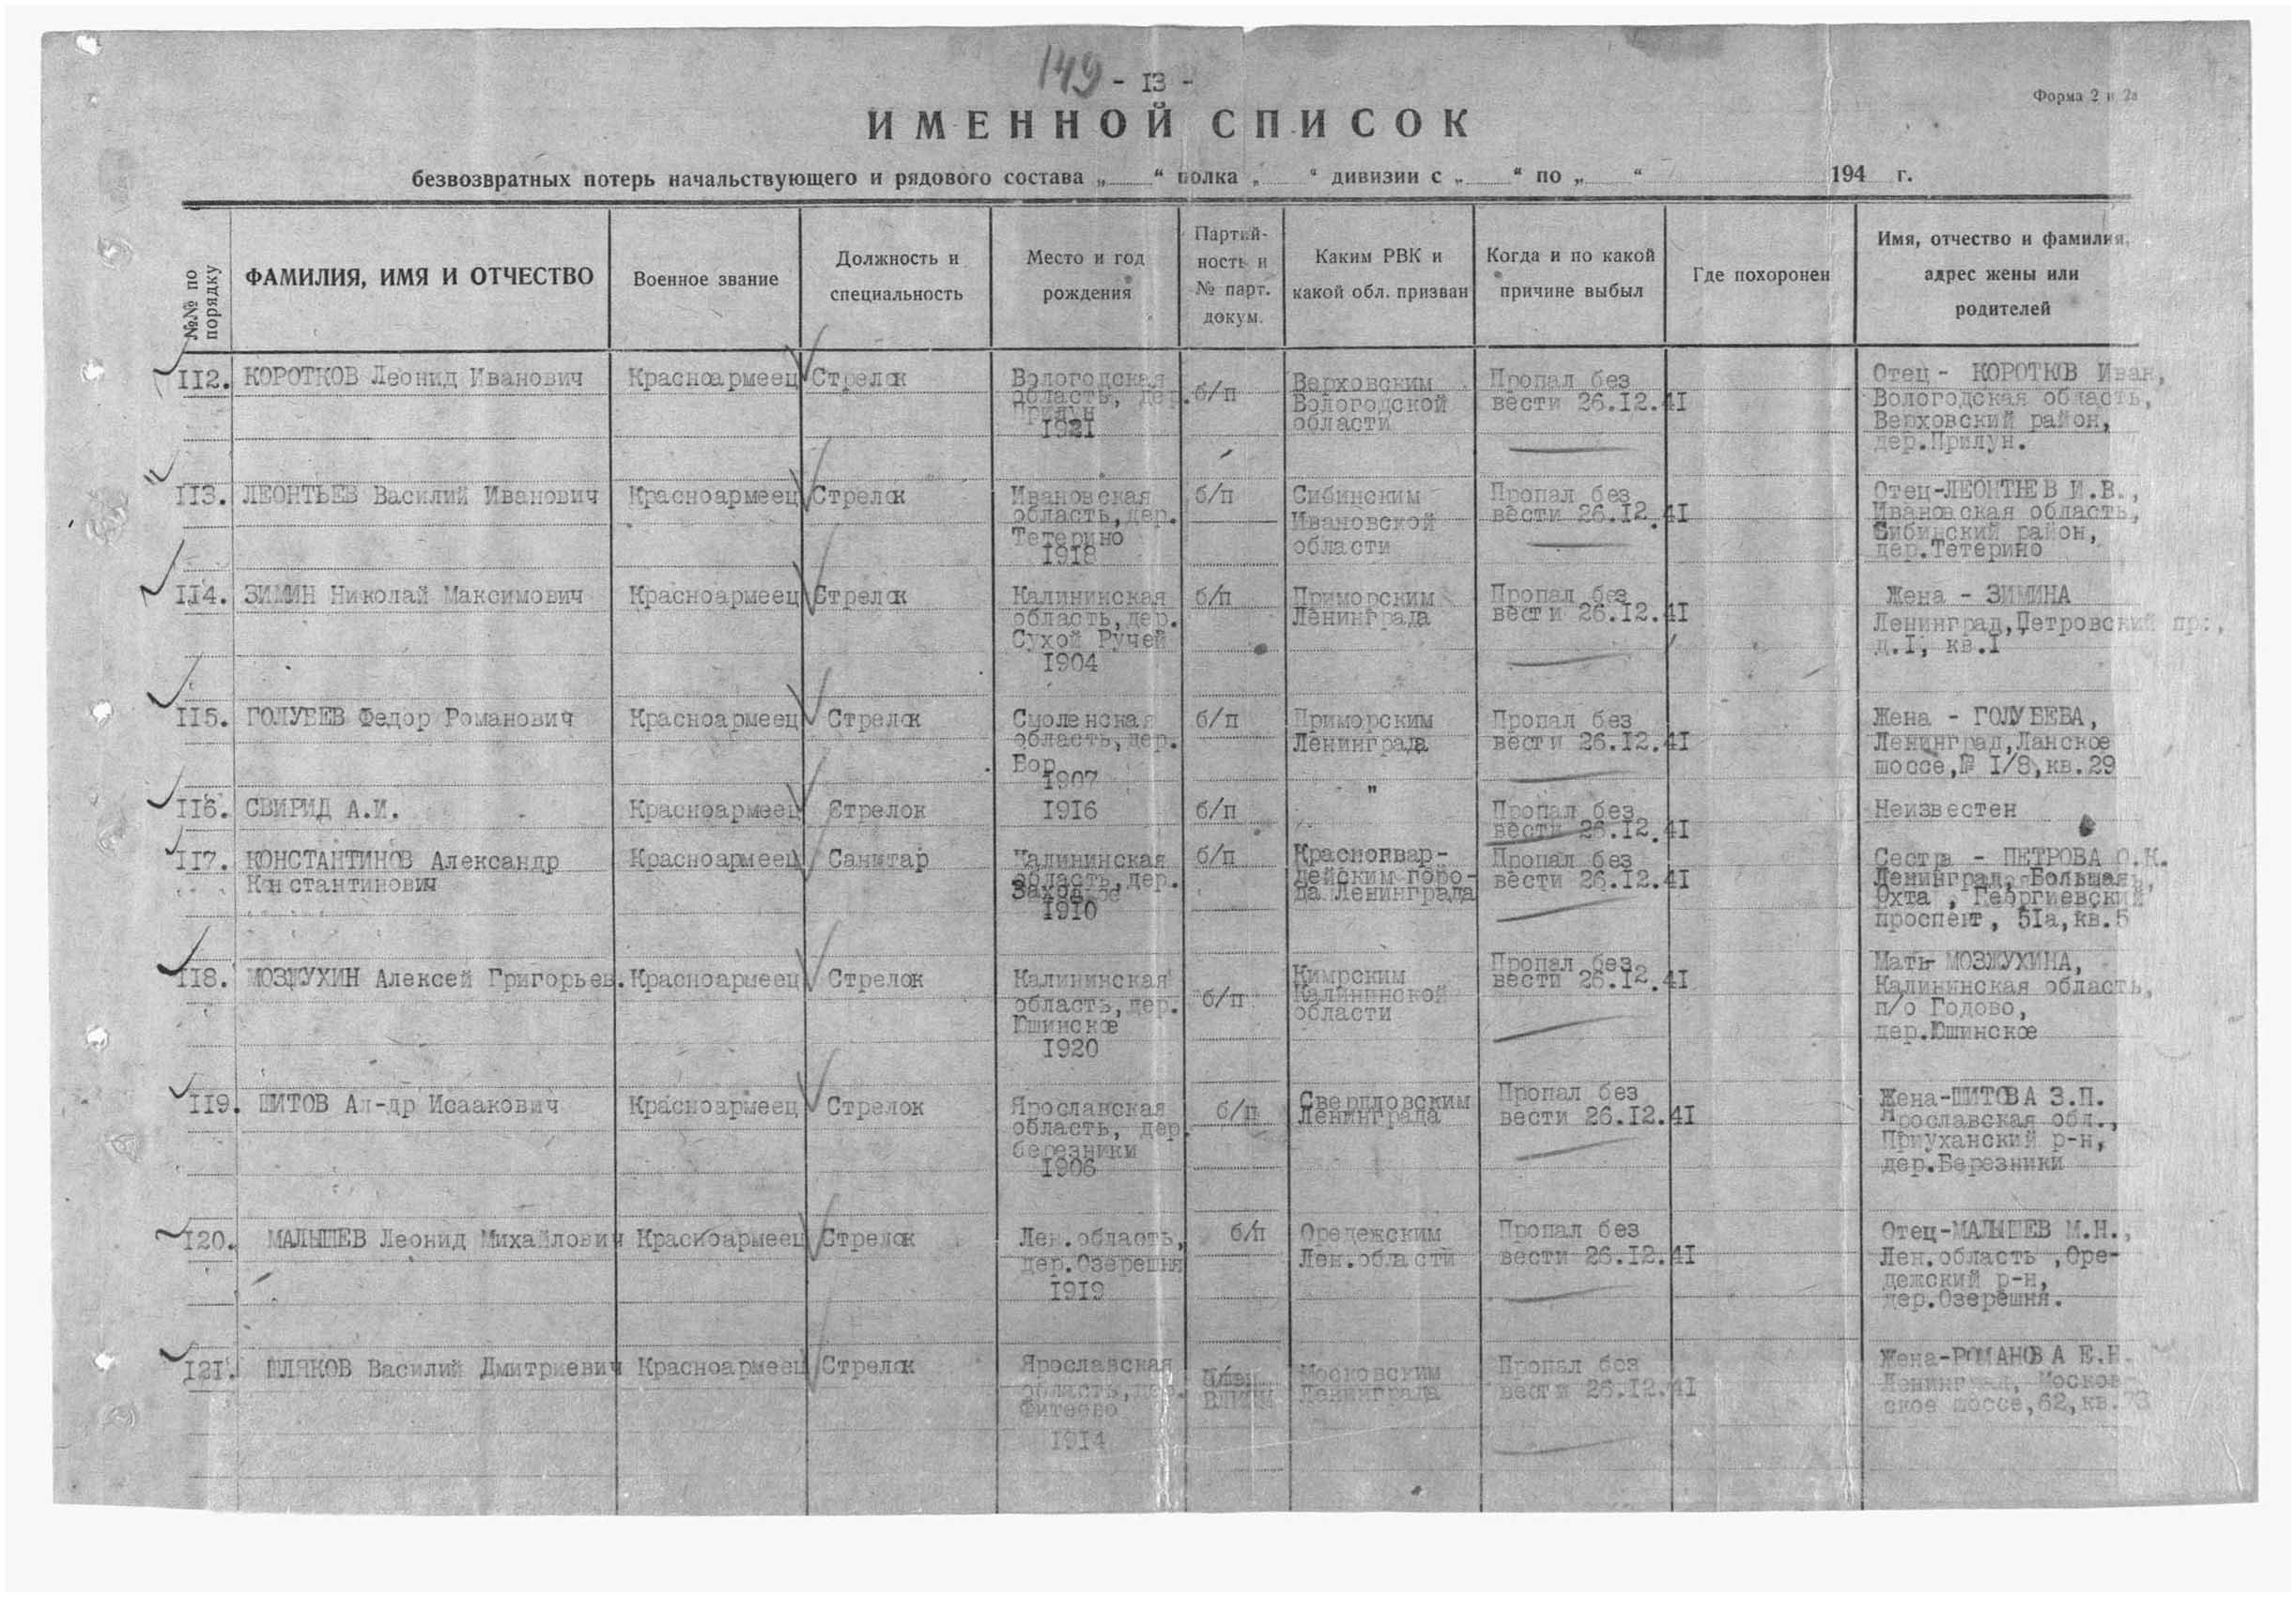 149 - 13 -
Форма 2 и 2а
ИМЕННОЙ СПИСОК
безвозвратных потерь начальствующего и рядового состава „ “ полка „ “ дивизии с „ “ по „ “ 194 г.
№№ по порядку
ФАМИЛИЯ, ИМЯ И ОТЧЕСТВО
Военное звание
Должность и
специальность
Место и год
рождения
Партий-
ность и
№ парт.
докум.
Каким РВК и
какой обл. призван
Когда и по какой
причине выбыл
Где похоронен
Имя, отчество и фамилия,
адрес жены или
родителей
112. КОРОТКОВ Леонид Иванович
Красноармеец
Стрелок
Вологодская
область, дер.
Прилун
1921
б/п
Верховским
Вологодской
области
Пропал без
вести 26.12.41
Отец - КОРОТКОВ Иван,
Вологодская область,
Верховский район,
дер.Прилун.
113. ЛЕОНТЬЕВ Василий Иванович
Красноармеец
Стрелок
Ивановская
область,дер.
Тетерино
1918
б/п
Сибинским
Ивановской
области
Пропал без
вести 26.12.41
Отец-ЛЕОНТЬЕВ И.В.,
Ивановская область,
Сибинский район,
дер.Тетерино
114. ЗИМИН Николай Максимович
Красноармеец
Стрелок
Калининская
область,дер.
Сухой Ручей
1904
б/п
Приморским
Ленинграда
Пропал без
вести 26.12.41
Жена - ЗИМИНА
Ленинград,Петровский пр.,
д.1, кв.1
115. ГОЛУБЕВ Федор Романович
Красноармеец
Стрелок
Смоленская
область,дер.
Бор
1907
б/п
Приморским
Ленинграда
Пропал без
вести 26.12.41
Жена - ГОЛУБЕВА,
Ленинград,Ланское
шоссе,№ 1/8,кв.29
116. СВИРИД А.И.
Красноармеец
Стрелок
1916
б/п
"
Пропал без
вести 26.12.41
Неизвестен
117. КОНСТАНТИНОВ Александр
Константинович
Красноармеец
Санитар
Калининская
область,дер.
1910
б/п
Красногвар-
дейским горо-
да Ленинграда
Пропал без
вести 26.12.41
Сестра - ПЕТРОВА О.К.
Ленинград, Большая
Охта, Георгиевский
проспект, 51а,кв.5
118. МОЗЖУХИН Алексей Григорьев.
Красноармеец
Стрелок
Калининская
область,дер.
Юшинское
1920
б/п
Кимрским
Калининской
области
Пропал без
вести 26.12.41
Мать- МОЗЖУХИНА,
Калининская область,
п/о Годово,
дер.Юшинское
119. ШИТОВ Ал-др Исаакович
Красноармеец
Стрелок
Ярославская
область, дер.
березники
1906
б/п
Свердловским
Ленинграда
Пропал без
вести 26.12.41
Жена-ШИТОВА З.П.
Ярославская обл.,
Приуханский р-н,
дер.Березники
120. МАЛЫШЕВ Леонид Михайлович
Красноармеец
Стрелок
Лен.область,
дер.Озерешня
1919
б/п
Оредежским
Лен.области
Пропал без
вести 26.12.41
Отец-МАЛЫШЕВ М.Н.,
Лен.область,Оре-
дежский р-н,
дер.Озерешня.
121. ШЛЯКОВ Василий Дмитриевич
Красноармеец
Стрелок
Ярославская
область,дер.
Фитеево
1914
Московским
Ленинграда
Пропал без
вести 26.12.41
Жена-РОМАНОВА Е.Н.
Ленинград, Москов-
ское шоссе,62,кв.73